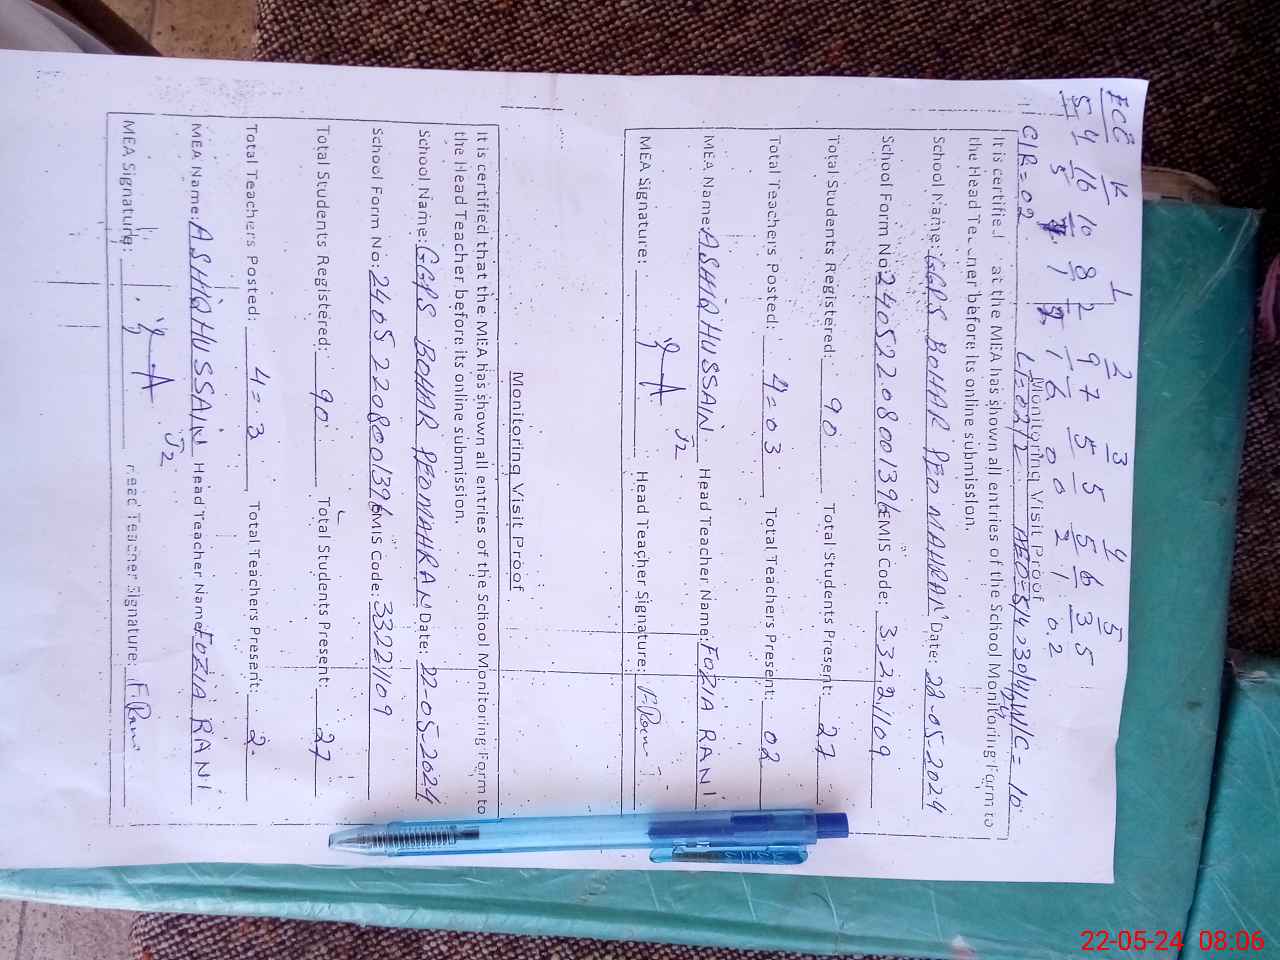 ECE K 1 2 3 4 5
54 16 10 8 2 9 7 5 5 5 6 3 5
5 1 1 6 0 0 2 1 0.2
C/R=02
Monitoring Visit Proof
It is certified at the MEA has shown all entries of the School Monitoring Form to
the Head Teacher before its online submission.
School Name: GGPS BOHAR Date: 22-05-2024
School Form No: 24052208001396 EMIS Code: 33221109
Total Students Registered: 90 Total Students Present: 27
Total Teachers Posted: 4=03 Total Teachers Present: 02
MEA Name: ASHIQ HUSSAIN Head Teacher Name: FOZIA RANI
J2
MEA Signature: Head Teacher Signature:
Monitoring Visit Proof
It is certified that the MEA has shown all entries of the School Monitoring Form to
the Head Teacher before its online submission.
School Name: GGPS BOHAR Date: 22-05-2024
School Form No: 24052208001396 EMIS Code: 33221109
Total Students Registered: 90 Total Students Present: 27
Total Teachers Posted: 4=3 Total Teachers Present: 2
MEA Name: ASHIQ HUSSAIN Head Teacher Name: FOZIA RANI
J2
MEA Signature: Head Teacher Signature:
22-05-24 08:06